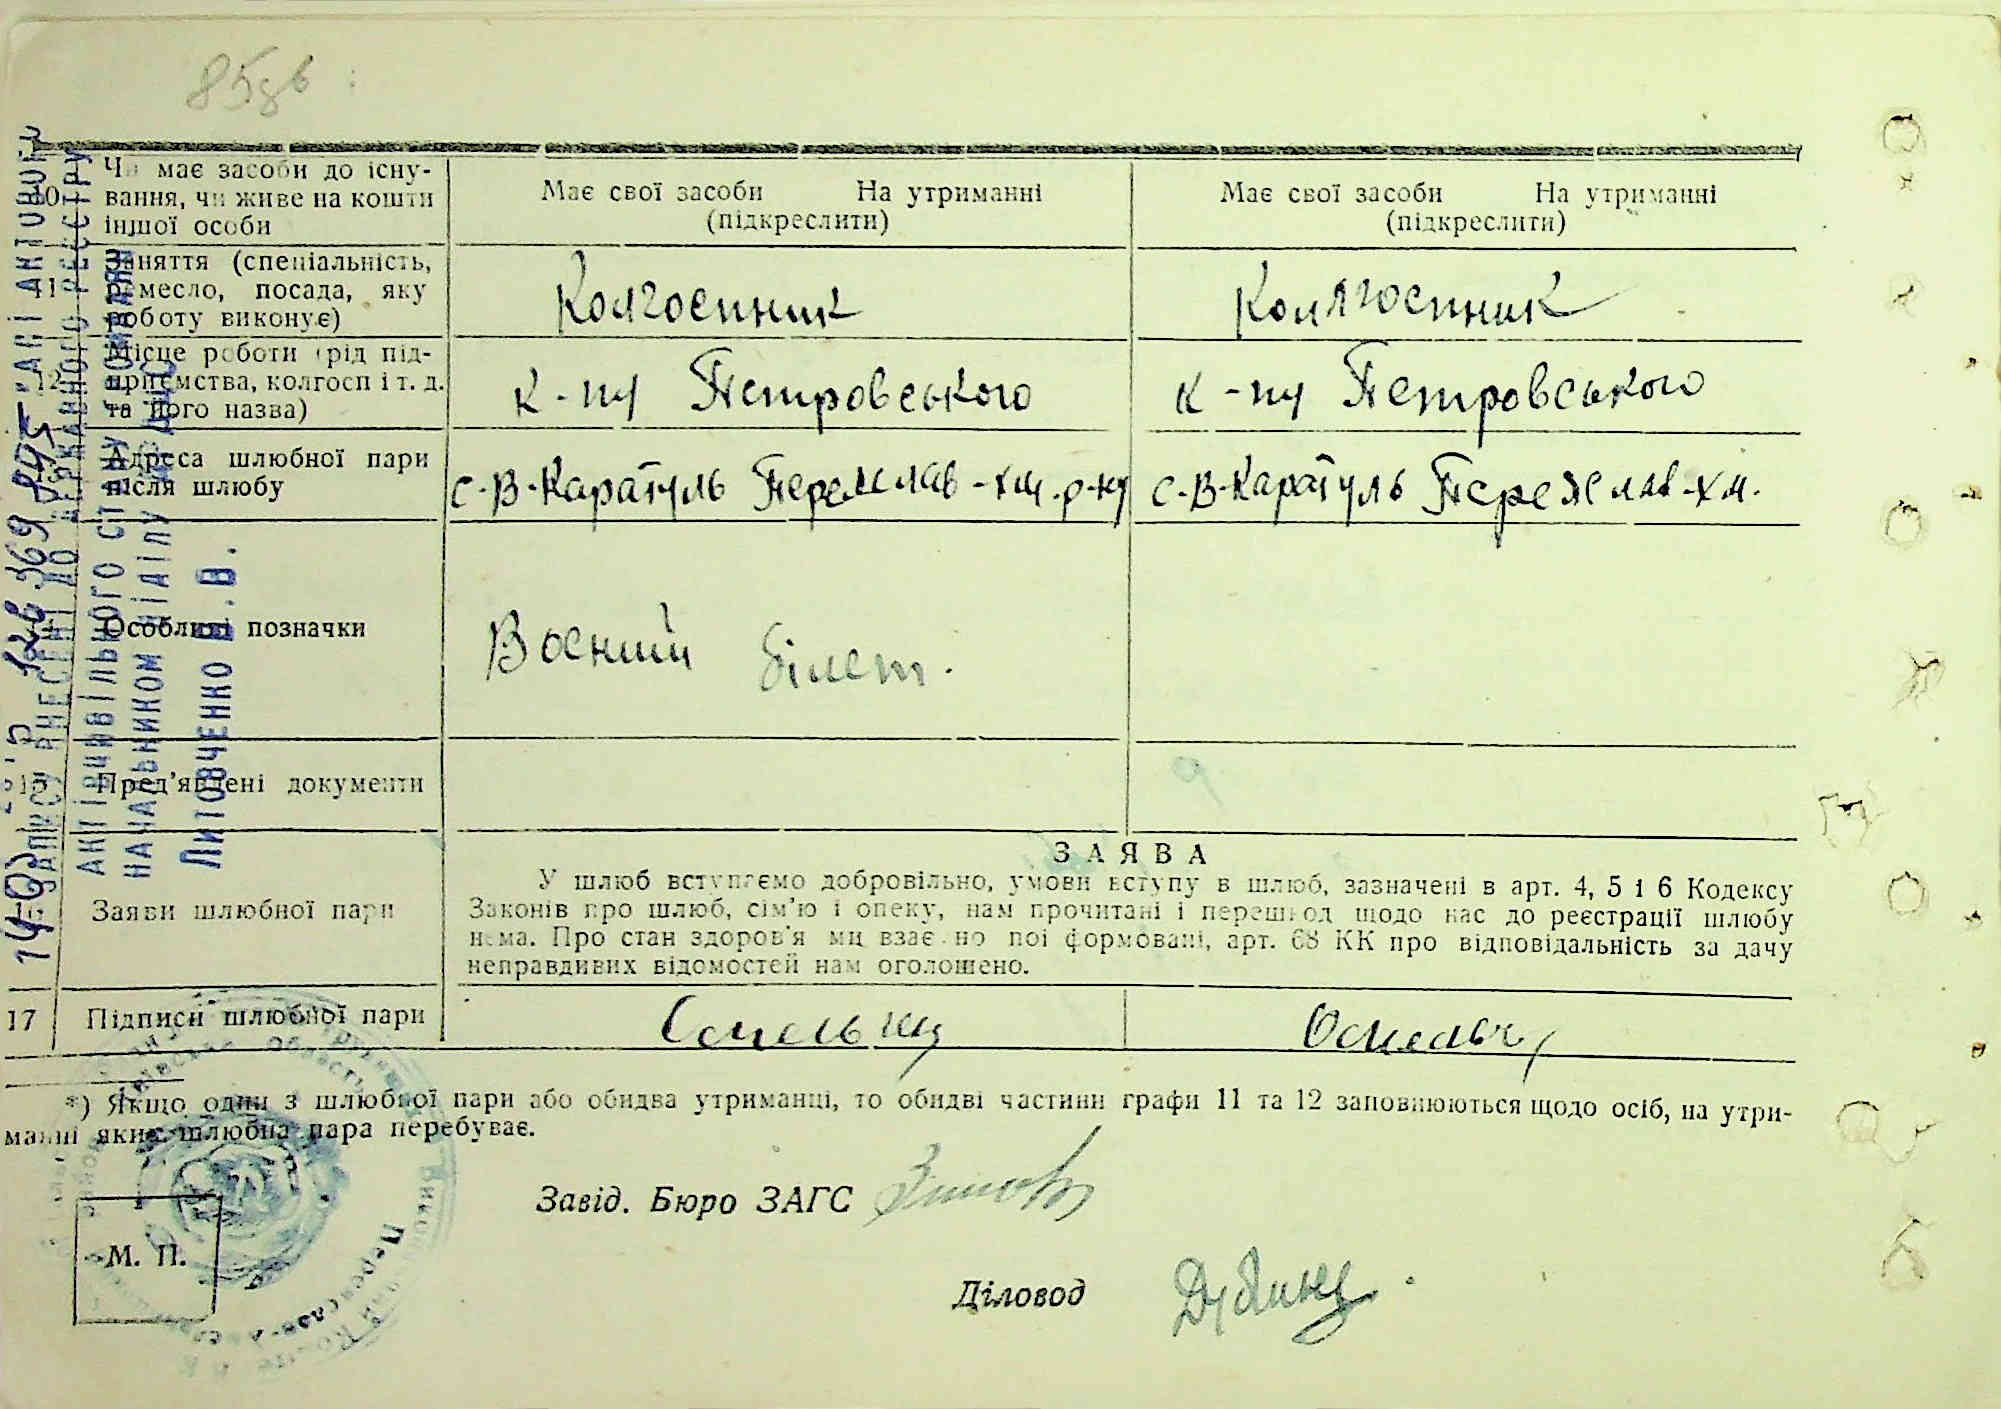 85зв
10 Чи має засоби до існу-
вання, чи живе на кошти
іншої особи
Має свої засоби На утриманні
(підкреслити)
Має свої засоби На утриманні
(підкреслити)
11 Заняття (спеціальність,
ремесло, посада, яку
роботу виконує)
Колгоспник
Колгоспник
12 Місце роботи (рід під-
приємства, колгосп і т. д.
та його назва)
к-пу Петровського
к-пу Петровського
Адреса шлюбної пари
після шлюбу
с-В-Каратуль Переяслав-хм. р-ну
с-В-Каратуль Переяслав-хм.
Особливі позначки
Воєний білет.
15 Пред'явлені документи
16 Заяви шлюбної пари
ЗАЯВА
У шлюб вступаємо добровільно, умови вступу в шлюб, зазначені в арт. 4, 5 і 6 Кодексу
Законів про шлюб, сім'ю і опеку, нам прочитані і перешкод щодо нас до реєстрації шлюбу
нема. Про стан здоров'я ми взаємно поінформовані, арт. 68 КК про відповідальність за дачу
неправдивих відомостей нам оголошено.
17 Підписи шлюбної пари
*) Якщо один з шлюбної пари або обидва утриманці, то обидві частини графи 11 та 12 заповнюються щодо осіб, на утри-
манні яких шлюбна пара перебуває.
Завід. Бюро ЗАГС
М. П.
Діловод
ДАНІ АКТОВОГО
ЗАПИСУ ВНЕСЕНІ ДО ДЕРЖАВНОГО РЕЄСТРУ
АКТІВ ЦИВІЛЬНОГО СТАНУ ГРОМАДЯН
НАЧАЛЬНИКОМ ВІДДІЛУ
Литовченко В.